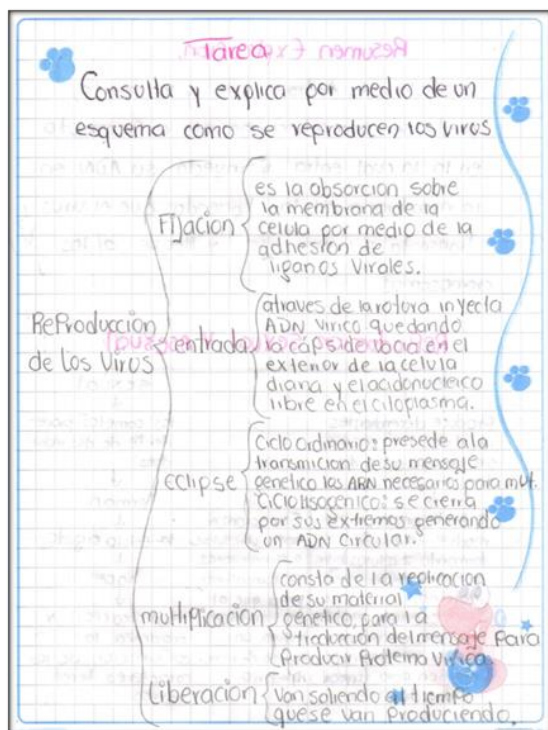 Tarea
Consulta y explica por medio de un
esquema como se reproducen los virus
Reproducción
de los Virus
Fijacion
es la absorcion sobre
la membrana de la
celula por medio de la
adhesión de
liganos Virales.
entrada
atraves de la rotura inyecta
ADN virico quedando
la cápside vacia en el
exterior de la celula
diana y el acido nucleico
libre en el citoplasma.
eclipse
Ciclo ordinario: presede a la
transmicion de su mensaje
genetico los ARN necesarios para mut.
Ciclo lisogenico: se cierra
por sus extremos generando
un ADN Circular.
multiplicacion
consta de la replicacion
de su material
genetico, para la
traducción del mensaje para
Producir Proteina Virica
Liberacion
Van saliendo al tiempo
que se van Produciendo.